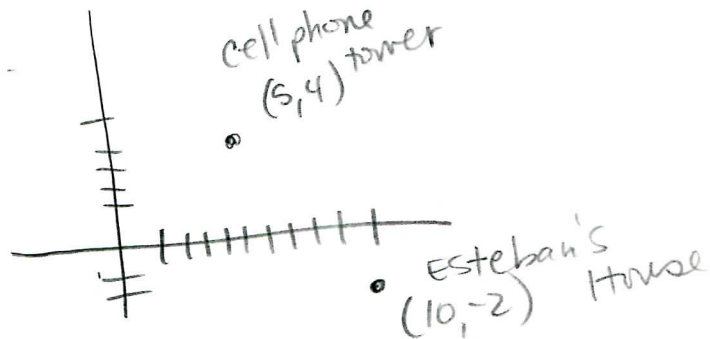 cell phone
tower
(5,4)
Esteban's
House
(10,-2)